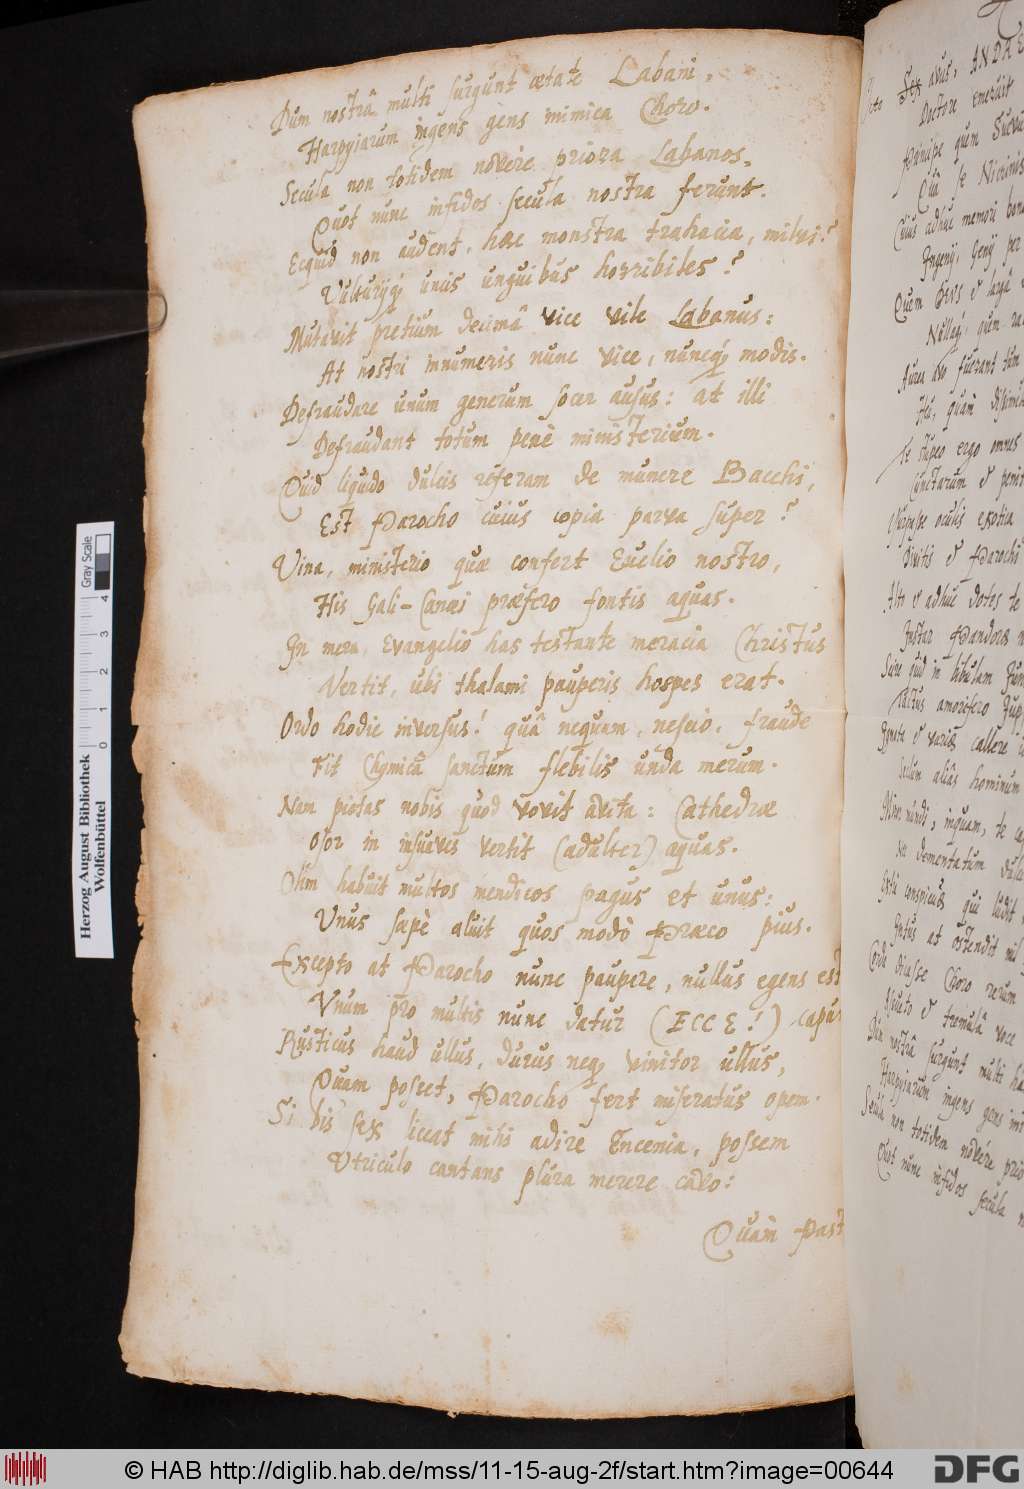 Dum nostrâ multi surgunt ætate Labani,
Harpyiarum ingens gens inimica Choro.
Secula non totidem nôvere priora Labanos,
Quot nunc infidos secula nostra ferunt.
Ecquid non audent, hæc monstra trahacia, milvi?
Vulturijq́ unis unguibus horribiles?
Mutavit pretium decimâ vice vile Labanus:
At nostri innumeris nunc vice, nuncq́ modis.
Defraudare unum generum socer ausus: at illi
Defraudant totum penè ministerium.
Quid liquido dulcis referam de munere Bacchi,
Est Parocho cuius copia parva super?
Vina, ministerio quæ confert Euclio nostro,
His Gali-Canæi præfero fontis aquas.
In mera, Evangelio has testante meracia Christus
Vertit, ubi thalami pauperis hospes erat.
Ordo hodie inversus! quâ nequam, nescio, fraude
Fit Chymicâ sanctum flebilis unda merum.
Nam pietas nobis quod vovit avita: Cathedræ
Osor in insuaves vertit (adulter) aquas.
Olim habuit multos mendicos pagus et unus:
Unus sæpè aluit quos modò Præco pius.
Excepto at Parocho nunc paupere, nullus egens est
Vnum pro multis nunc datur (ECCE!) caput
Rusticus haud ullus, durus neq́ vinitor ullus,
Quam poscet, Parocho fert miseratus opem.
Si bis sex liceat mihi adire Encenia, possem
Utriculo cantans plura merere cavo:
Quàm Past
avus, ANDRE
Doctore emeruit
Principe quem Suevu
Cuius adhuc memori
Ingenij, Genij per
Quem DEus et largâ
Aurea
te stupeo ergo omnes
Cunctarum et
oculis exotica
Divitis et Parochi
Alto et adhuc dotes te
Instar Pandoræ
callere
hominum
inquam, te
dementatum
qui ludit
at ostendit mil
Choro rerum
et tremulâ voce
Dum nostrâ surgunt multi
Harpyiarum ingens gens ini
Secula non totidem nôvére prio
Quot nunc infidos secula n
Herzog August Bibliothek
Wolfenbüttel
0 1 2 3 4 Gray Scale
© HAB http://diglib.hab.de/mss/11-15-aug-2f/start.htm?image=00644
DFG